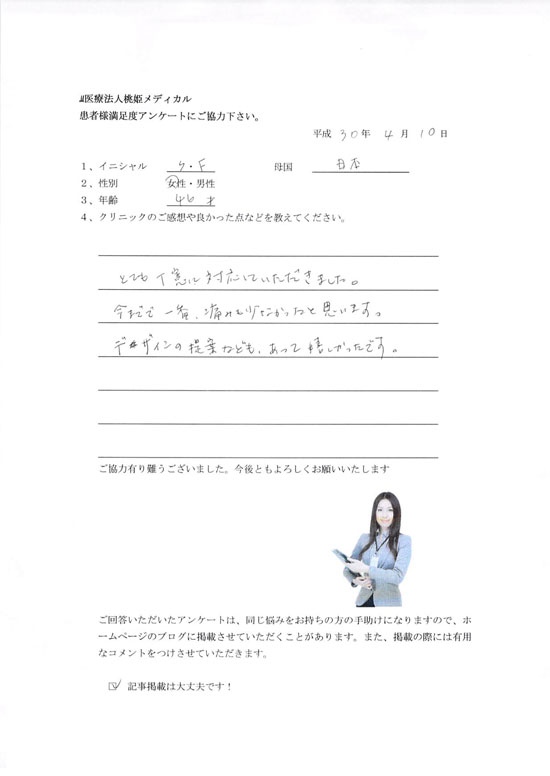 医療法人桃姫メディカル
患者様満足度アンケートにご協力下さい。
平成 30年 4月 10日
1、イニシャル ケ・F 母国 日本
2、性別 女性・男性
3、年齢 46才
4、クリニックのご感想や良かった点などを教えてください。
とても丁寧に対応していただきました。
今までで一番、痛みも少なかったと思います。
デザインの提案なども、あって嬉しかったです。
ご協力有り難うございました。今後ともよろしくお願いいたします
ご回答いただいたアンケートは、同じ悩みをお持ちの方の手助けになりますので、ホ
ームページのブログに掲載させていただくことがあります。また、掲載の際には有用
なコメントをつけさせていただきます。
☑ 記事掲載は大丈夫です！